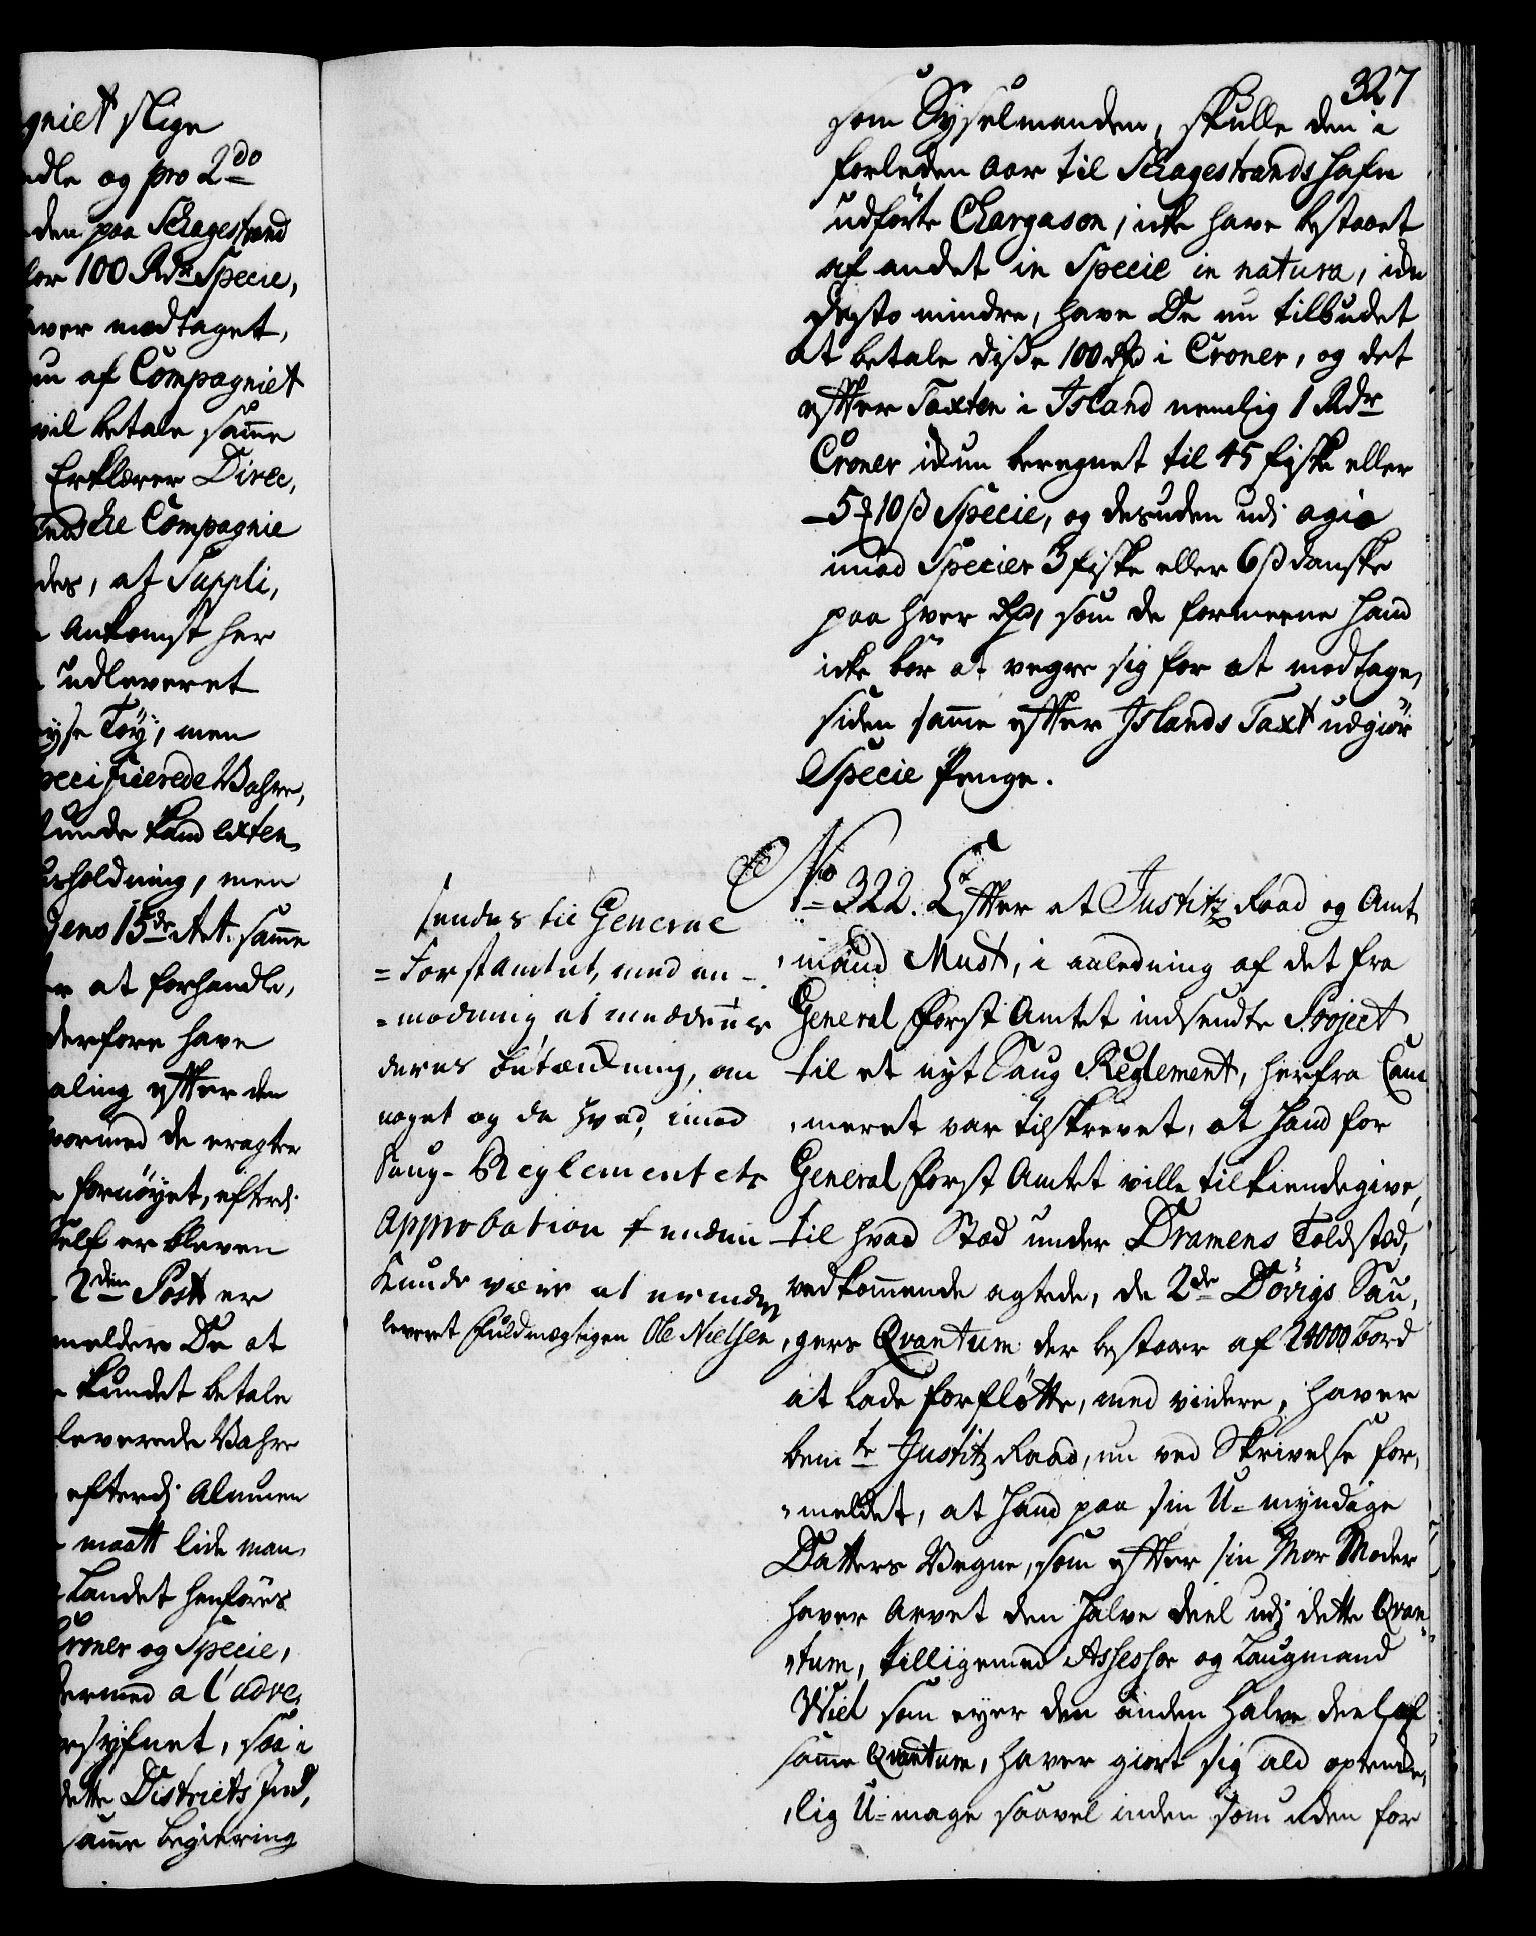 gniet slige
dle og pro 2do
den paa Schagestrand
for 100 Rdr Specie,
aver modtaget,
nu af Compagniet
vil betale samme
Erklærer Direc,
ndske Compagnie
des, at Suppli,
Ankomst her
udleveret
yse Tøÿ, men
pecificerede Vahre,
lunde kand exten,
usholdning, men
gens 15de Art. samme
er at forhandle,
derfore have
aling efter den
vormed de eragter
fornøyet, efterdj
self er bleven
2den Post er
melder De at
kundet betale
leverede Vahre
efterdj Almuen
maatt lide man,
Landet henføres
Croner og Specie,
dermed at adve,
rsyfnet, saa i
dette Districts Ind,
samme begiering
327
som Sysselmanden, skulle den i
forleden Aar til Schagestrands Hafn
udførte Chargason, icke have bestaaet
af andet in Specie in natura, icke
desto mindre, have De nu tilbudet
at betale disse 100 Rdr i Croner, og det
efter Taxten i Island nemlig 1 Rdr
Croner icun beregnet til 45 fiske eller
5 ₰ 10 ß Specie, og desuden udj agio
imod Species 3 fiske eller 6 ß danske
paa hver Rdr, som de formeene Hand
icke bør at vegre sig for at modtage,
siden samme efter Islands Taxt udgiør
Specie Penge.
No 322. Efter at Justitz Raad og Amt,
mand Must, i anledning af det fra
General Forst Amtet indsendte Project
til et nyt Saug Reglement, herfra Cam
meret var tilskrevet, at Hand for
General Forst Amtet ville tilkiendegive,
til hvad Stæd under Dramens Toldstæd,
vedkommende agtede, de 2de Døvigs Sau,
gers Qvantum der bestaaer af 24000 Bord
at lade forfløtte, med videre, haver
bemte Justitz Raad, nu ved Skrivelse for,
meldet, at Hand paa sin U-myndige
Datters Vegne, som efter sin Mor Moder
haver Arvet den halve deel udj dette Qvan
tum, tilligemed Assessor og Laugmand
Wiel som eyer den anden halve deel af
samme Qvantum, haver giort sig ald optende,
lig U-mage saavel inden som uden for
sendes til General
=Forst Amtet, med an-
=modning at meddele
deres betænkning, om
noget og da hvad, imod
Saug-Reglementets
Approbation f
Kunde være at erindre
leveret Fuldmægtigen Ole Nielsen